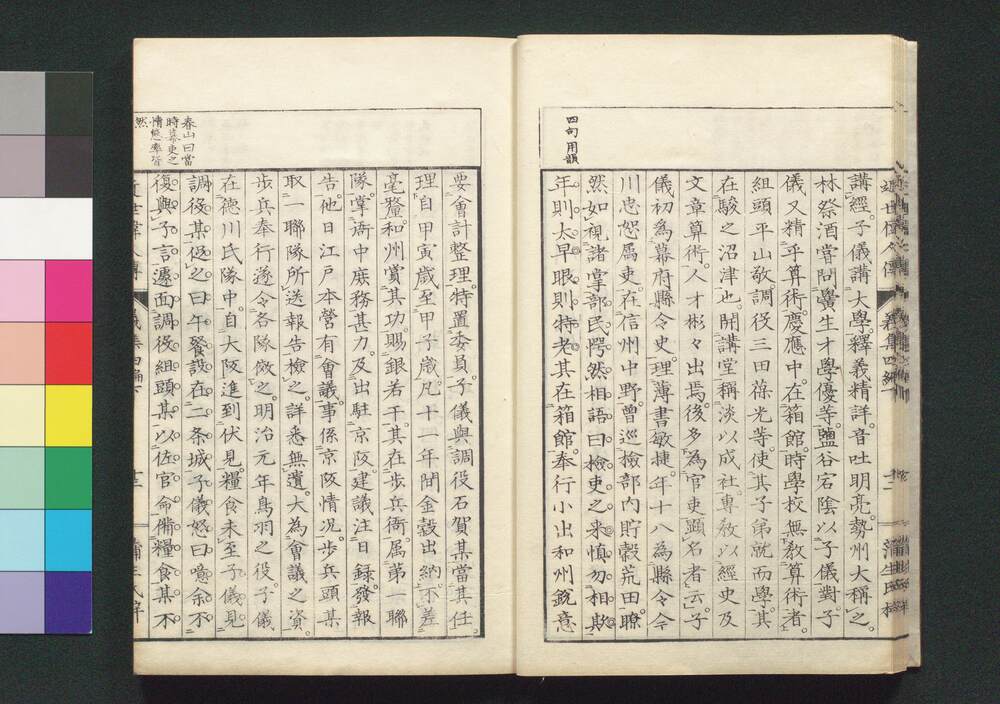 四句用韻
講經。子儀講大學。釋義精詳。音吐明亮。勢州大稱之。
林祭酒嘗問黌生才學優等。鹽谷宕陰以子儀對。子
儀又精乎算術。慶應中。在箱館。時學校無教算術者。
組頭平山敬。調役三田葆光等。使其子弟就而學。其
在駿之沼津也。開講堂。稱淡以成社。專教以經史及
文章算術。人才彬々出焉。後多為官吏顯名者云。子
儀初為幕府縣令史。理薄書敏捷。年十八為縣令今
川忠恕属吏。在信州中野。曾巡檢部內貯穀荒田。瞭
然如視諸掌。部民愕然相語曰。檢吏之來。慎勿相欺。
年則太早。眼則特老。其在箱館。奉行小出和州銳意
春山曰當
時幕吏之
情態率皆
然
要會計整理。特置委員。子儀與調役石賀某當其任。
理自甲寅歲至甲子歲。凡十一年間金穀出納。不差
毫釐。和州賞其功。賜銀若干。其在步兵衙。属第一聯
隊。掌衙中庶務甚力。及出駐京阪。建議注日錄。發報
告。他日江戶本營有會議。事係京阪情况。步兵頭某
取一聯隊所送報告檢之。詳悉無遺。大為會議之資。
步兵奉行遂令各隊倣之。明治元年鳥羽之役。子儀
在德川氏隊中。自大阪進到伏見。糧食未至。子儀見
調役某促之。曰午餐設在二条城。子儀怒曰。噫余不
復與子言。邊面調役組頭某。以佐官命備糧食。某不